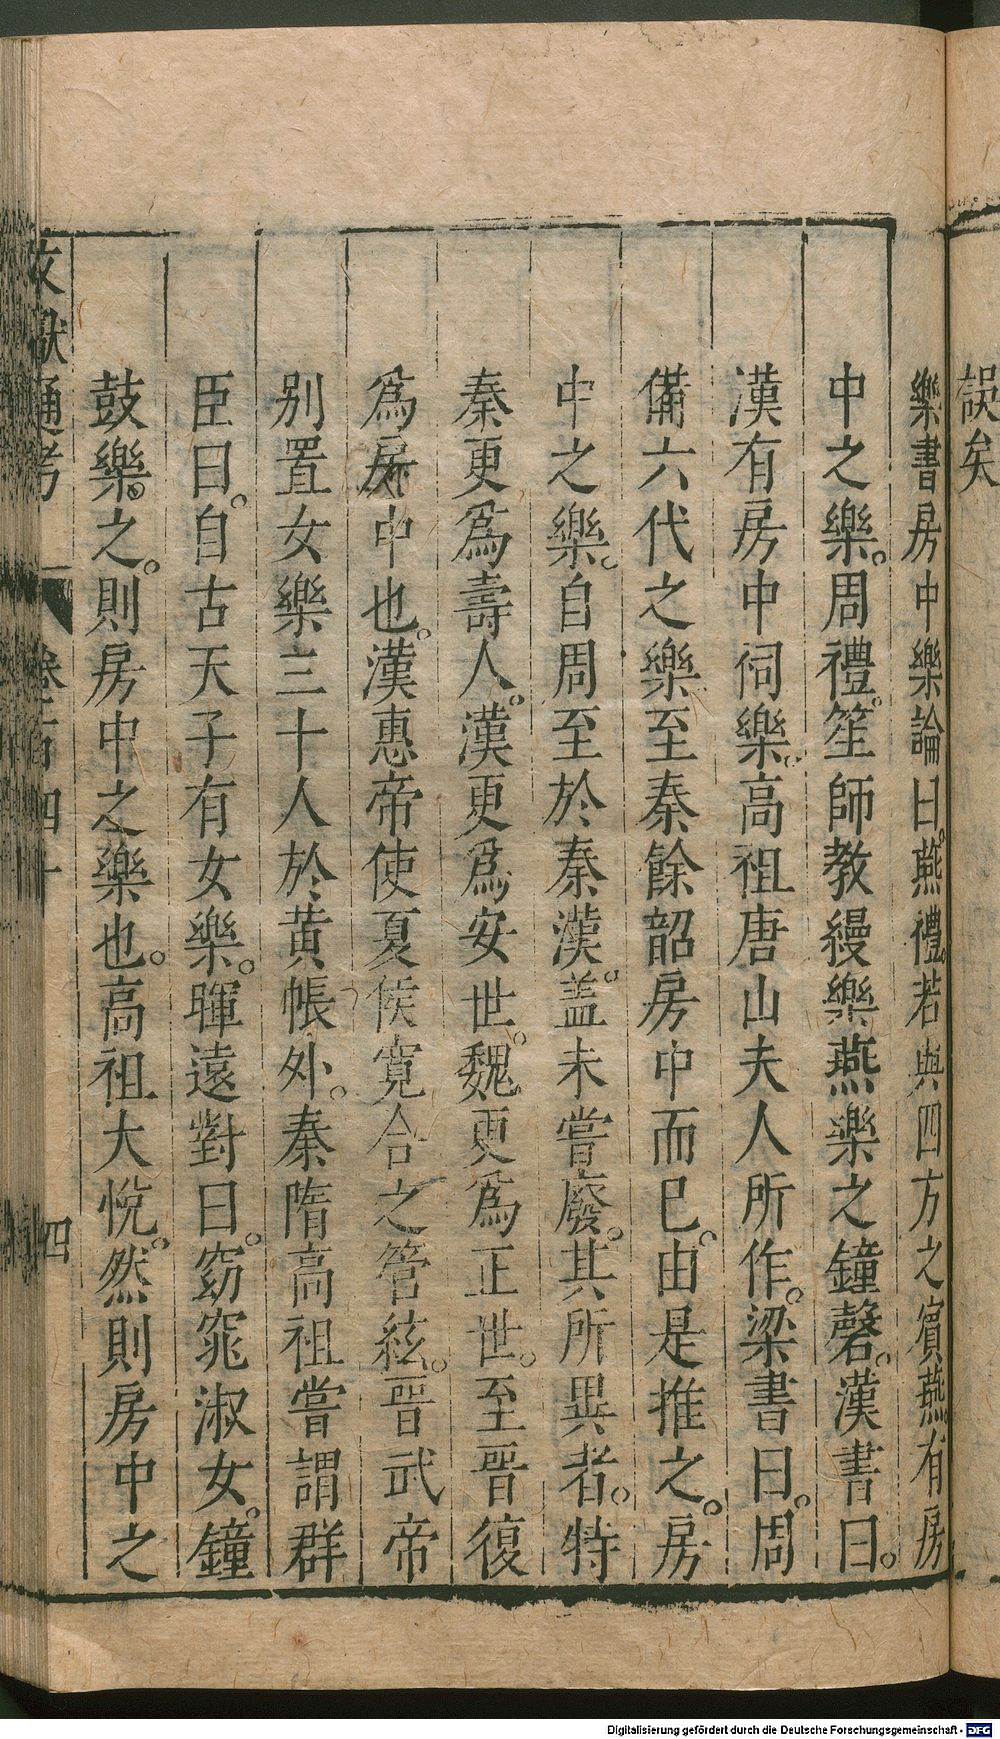 誤矣
樂書房中樂論曰。燕禮。若與四方之賓燕。有房
中之樂。周禮。笙師教縵樂燕樂之鐘磬。漢書曰。
漢有房中伺樂。高祖唐山夫人所作。梁書曰。周
備六代之樂至秦餘韶房中而已。由是推之。房
中之樂。自周至於秦漢。盖未嘗廢。其所異者。特
秦更爲壽人。漢更爲安世。魏更爲正世。至晉復
爲房中也。漢惠帝使夏侯寬合之管絃。晉武帝
别置女樂三十人於黄帳外。秦隋高祖嘗謂群
臣曰。自古天子有女樂。暉遠對曰。窈窕淑女。鐘
鼓樂之。則房中之樂也。高祖大悅。然則房中之
文獻通考 卷一百四十 四
Digitalisierung gefördert durch die Deutsche Forschungsgemeinschaft - DFG